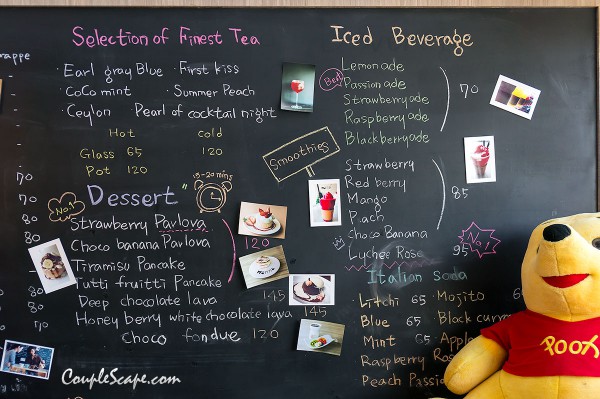 Selection of Finest Tea
· Earl gray Blue · First kiss
· CoCo mint · Summer Peach
· Ceylon · Pearl of cocktail night
Hot cold
Glass 65 120
Pot 120
15-20 mins
Dessert
No.1
Strawberry Pavlova
Choco banana Pavlova 120
Tiramisu Pancake
Tutti fruitti Pancake
Deep chocolate lava 145
Honey berry white chocolate lava 145
Choco fondue 120
rappe
70
70
80
80
80
80
80
70
Iced Beverage
Best
Lemonade
Passionade
Strawberryade 70
Raspberryade
Blackberryade
Smoothies
Strawberry
Red berry
Mango 85
Peach
Choco Banana
Lychee Rose 95 No.1
Italian soda
Litchi 65 · Mojito 6
Blue 65 · Black curra
Mint 65 · Apple
Raspberry Ro
Peach Passio
Pooh
CoupleScape.com